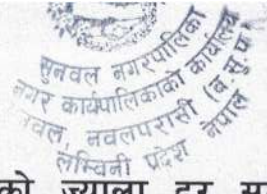 सुनवल नगरपालिका
नगर कार्यपालिकाको कार्यालय
नवलपरासी (ब.सु.प.)
लुम्बिनी प्रदेश नेपाल
को ज्याला दर